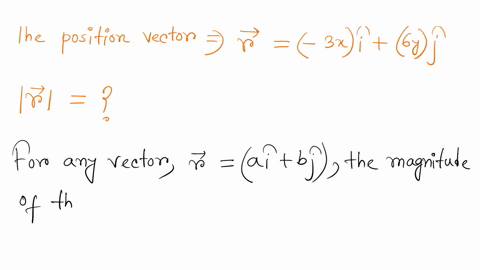 The position vector ⇒ r⃗ = (- 3x) î + (6y) ĵ
|r⃗| = ?
For any vector, r⃗ = (aî + bĵ), the magnitude
of th